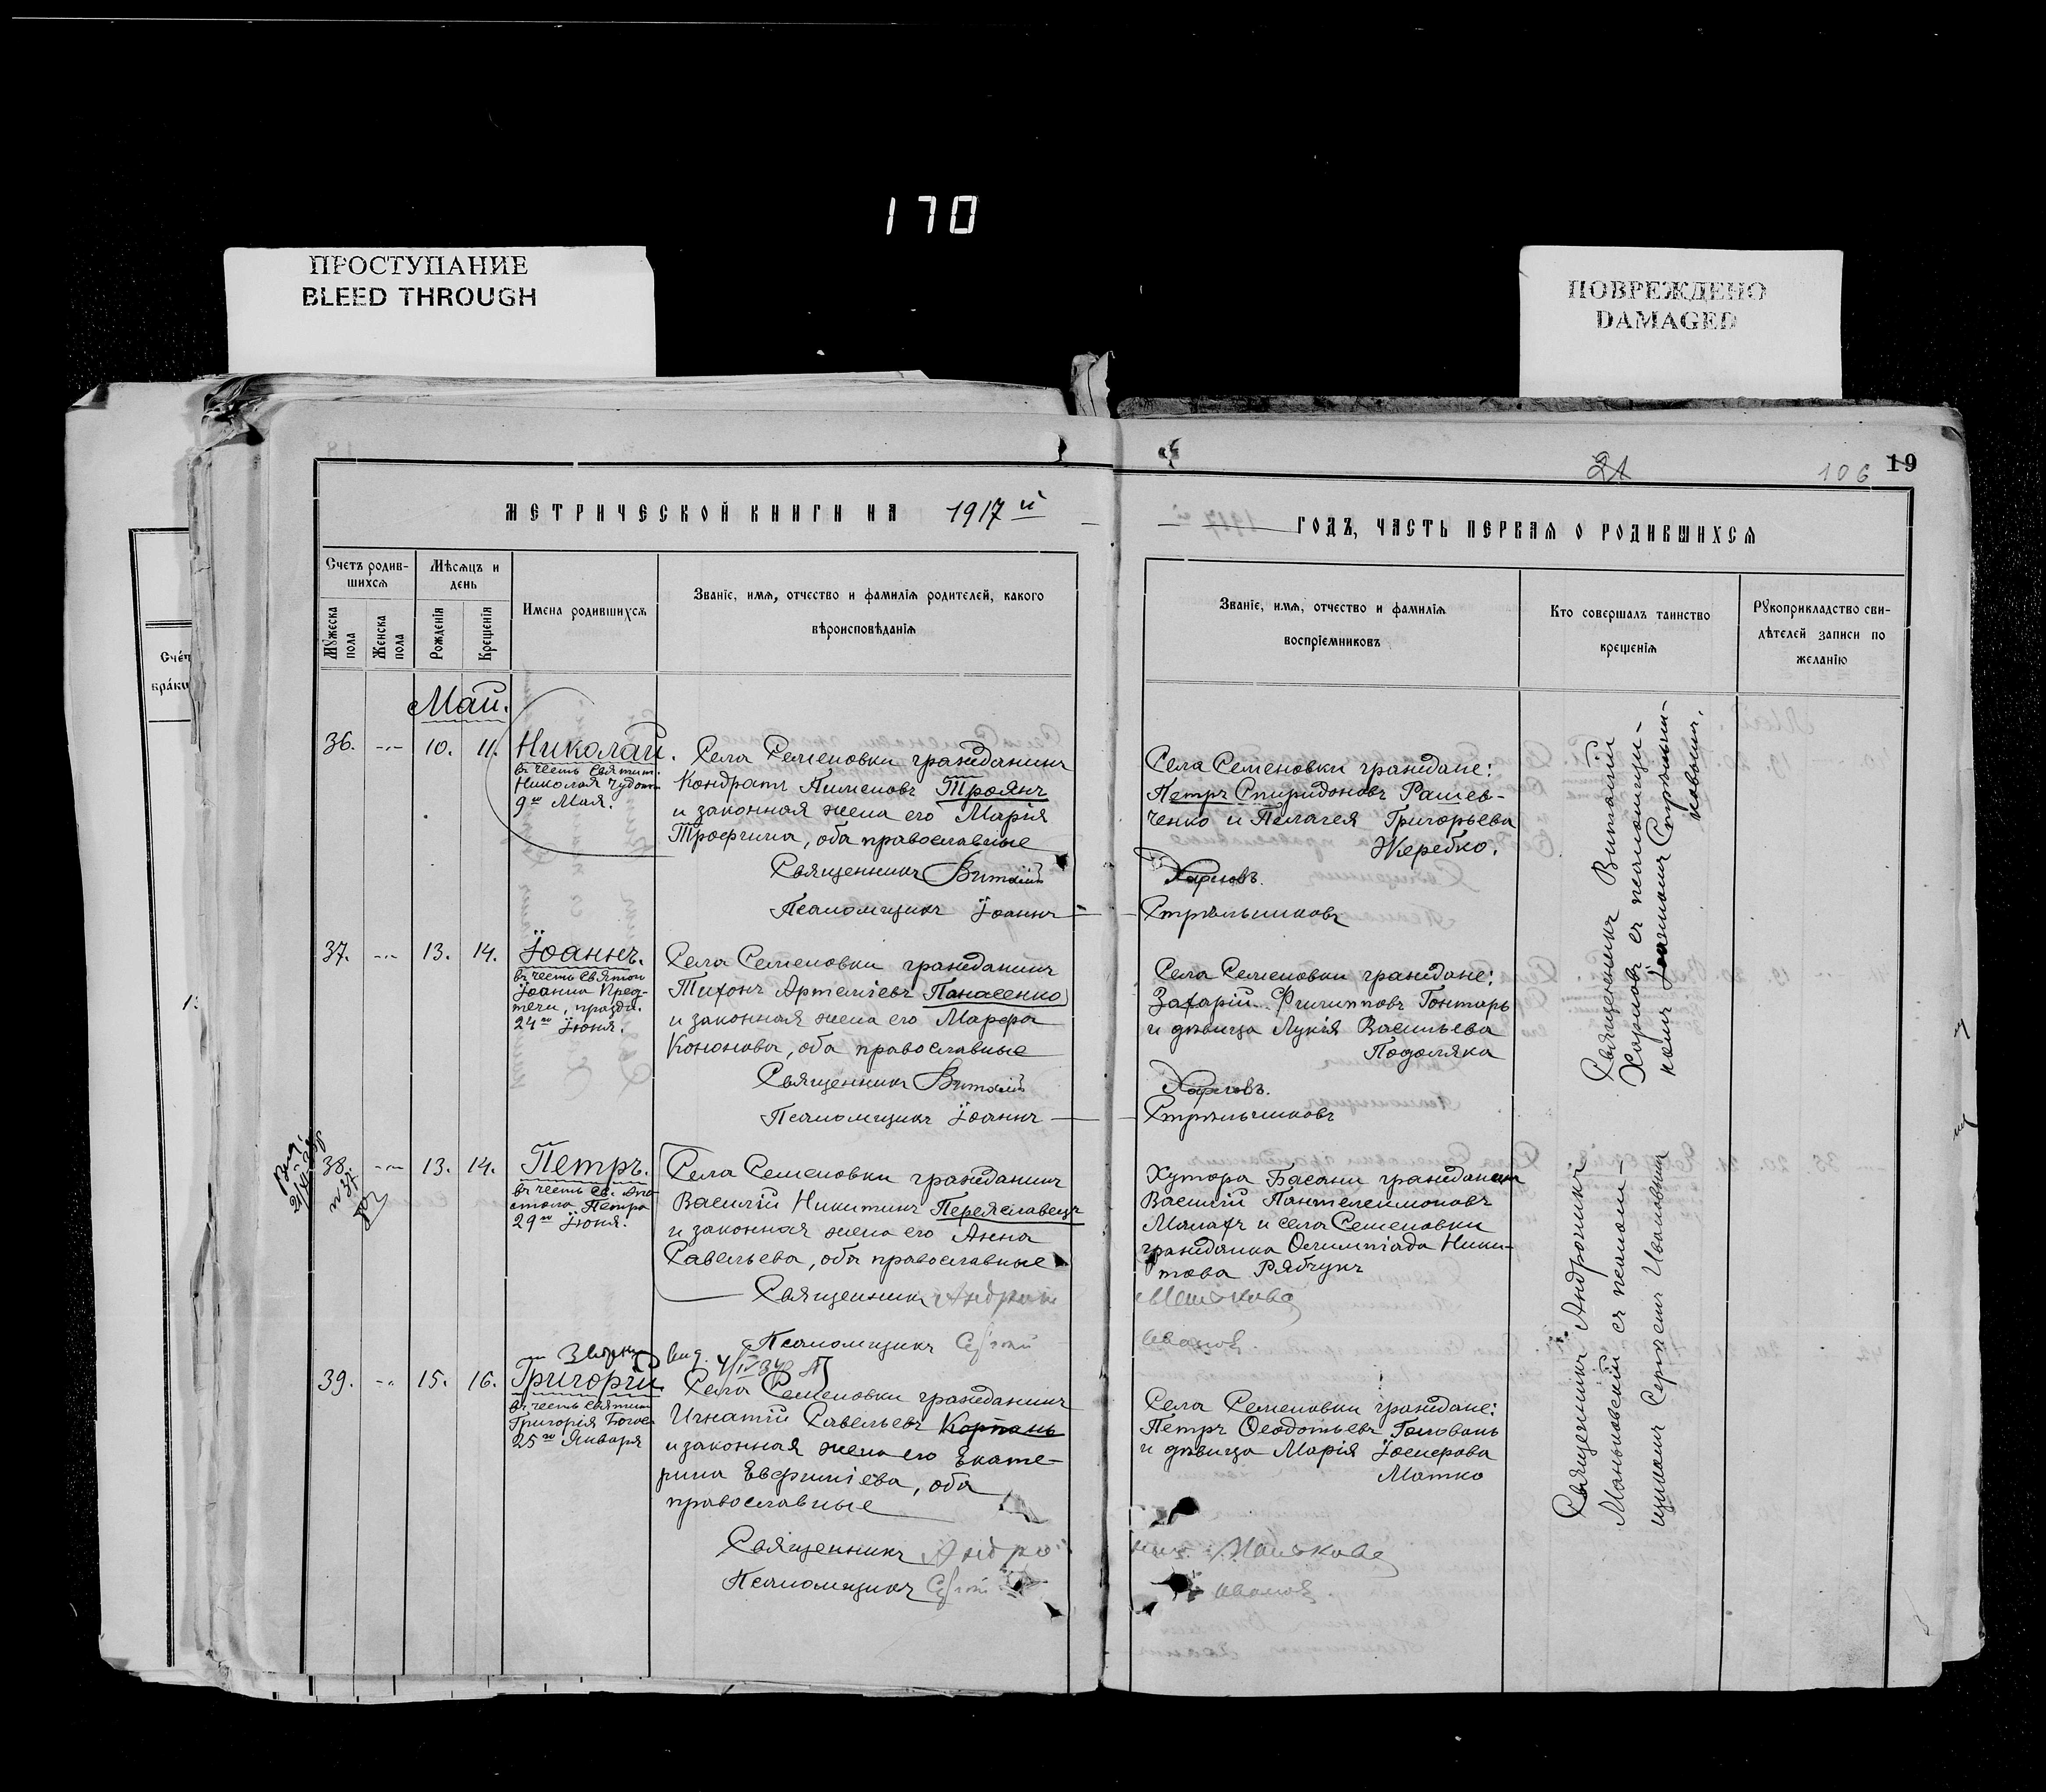 170
ПРОСТУПАНИЕ
BLEED THROUGH
ПОВРЕЖДЕНО
DAMAGED
21
106 19
МЕТРИЧЕСКОЙ КНИГИ НА 1917й
ГОДЪ, ЧАСТЬ ПЕРВАЯ О РОДИВШИХСЯ
Счетъ родив-
шихся
Мужеска пола
Женска пола
Мѣсяцъ и
день
Рожденія
Крещенія
Имена родившихся
Званіе, имя, отчество и фамилія родителей, какого
вѣроисповѣданія
Званіе, имя, отчество и фамилія
воспріемниковъ
Кто совершалъ таинство
крещенія
Рукоприкладство сви-
дѣтелей записи по
желанію
Май.
36. 10. 11. Николай.
въ честь Святит.
Николая Чудотв.
9го Мая.
Села Семеновки гражданинъ
Кондратъ Пименовъ Троянъ
и законная жена его Марія
Трофимова, оба православные
Священникъ Виталій
Псаломщикъ Іоаннъ
Села Семеновки граждане:
Петръ Спиридоновъ Рашев-
ченко и Пелагея Григорьева
Жеребко.
Харловъ.
Стрѣльниковъ
37. 13. 14. Іоаннъ.
въ честь Святого
Іоанна Пред-
течи, праздн.
24го Іюня.
Села Семеновки гражданинъ
Тихонъ Артеміевъ Панасенко
и законная жена его Марфа
Кононова, оба православные
Священникъ Виталій
Псаломщикъ Іоаннъ
Села Семеновки граждане:
Захарій Филипповъ Гонтарь
и дѣвица Лукія Васильева
Подоляка
Харловъ.
Стрѣльниковъ
Священникъ Виталій
Харловъ съ псаломщи-
комъ Іоанномъ Стрѣльни-
ковымъ.
38. 13. 14. Петръ.
въ честь св. Апо-
стола Петра
29го Іюня.
Села Семеновки гражданинъ
Василій Никитинъ Переяславецъ
и законная жена его Анна
Савельева, оба православные
Священникъ
Псаломщикъ Сергій
Хутора Басани гражданинъ
Василій Пантелеимоновъ
Малахъ и села Семеновки
гражданка Олимпіада Ники-
това Рябчукъ
Иванов.
39. 15. 16. Григорій.
въ честь Святит.
Григорія Богос.
25го Января
Села Семеновки гражданинъ
Игнатій Савельевъ Корпань
и законная жена его Екате-
рина Евфиміева, оба
православные
Священникъ
Псаломщикъ Сергій
Села Семеновки граждане:
Петръ Ѳеодотьевъ Головань
и дѣвица Марія Іосифова
Матко
Иванов.
Священникъ Андроникъ
Маньковскій съ псалом-
щикомъ Сергіемъ Ивановымъ